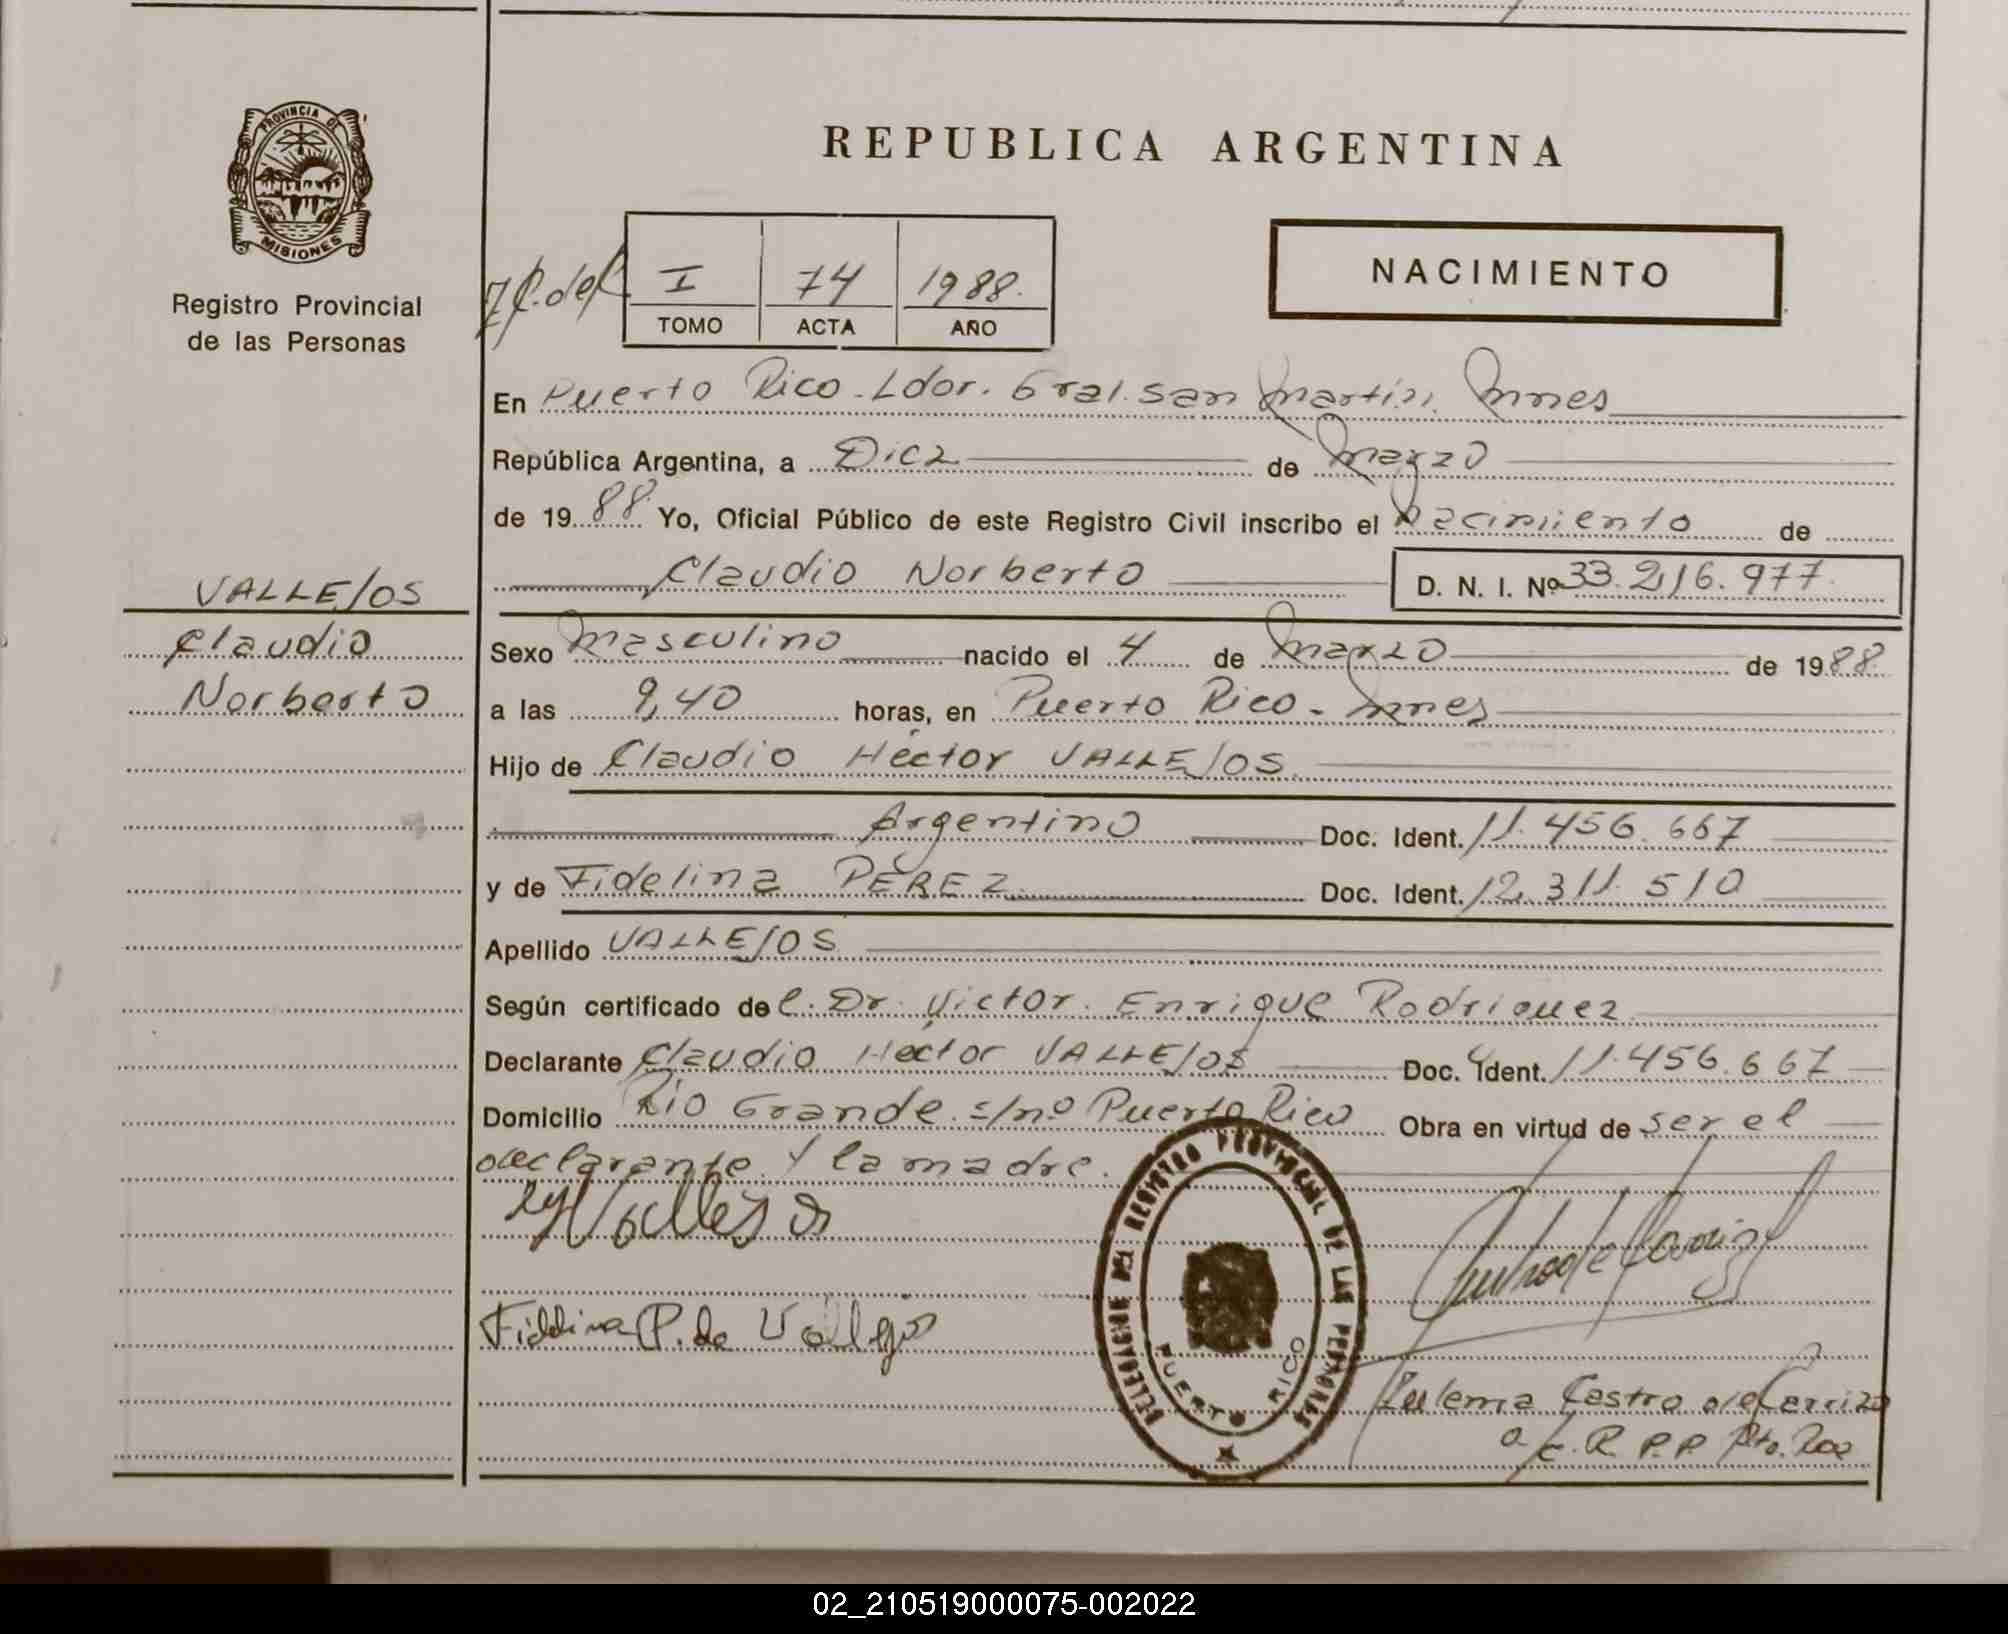 PROVINCIA DE
MISIONES
Registro Provincial
de las Personas
REPUBLICA ARGENTINA
I 74 1988.
TOMO ACTA AÑO
NACIMIENTO
En Puerto Rico - Ldor. Gral. San Martín, Mnes
República Argentina, a Diez de Marzo
de 1988. Yo, Oficial Público de este Registro Civil inscribo el Nacimiento de
Claudio Norberto D. N. I. Nº 33.216.977.
VALLEJOS
Claudio
Norberto
Sexo Masculino nacido el 4 de Marzo de 1988
a las 9,40 horas, en Puerto Rico - Mnes
Hijo de Claudio Héctor VALLEJOS
Argentino Doc. Ident. 11.456.667
y de Fidelina PEREZ Doc. Ident. 12.311.510
Apellido VALLEJOS
Según certificado del. Dr. Victor Enrique Rodriguez
Declarante Claudio Hector VALLEJOS Doc. Ident. 11.456.667
Domicilio Rio Grande s/nº Puerto Rico Obra en virtud de ser el
declarante y la madre.
Vallejos
Fidelina P. de Vallejos
DELEGACION DEL REGISTRO PROVINCIAL DE LAS PERSONAS
PUERTO RICO
Zulema Castro de Carrizo
a/c. R.P.P. Pto. Rico
02_210519000075-002022